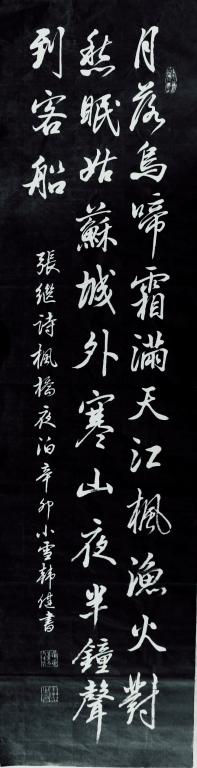 月落烏啼霜滿天江楓漁火對
愁眠姑蘇城外寒山夜半鐘聲
到客船
張繼詩楓橋夜泊辛卯小雪韩健書